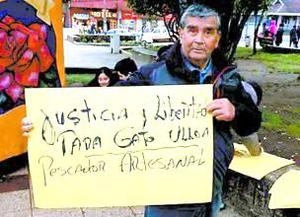 Justicia y Libertad
Para Gato Ulloa
Pescador Artesanal